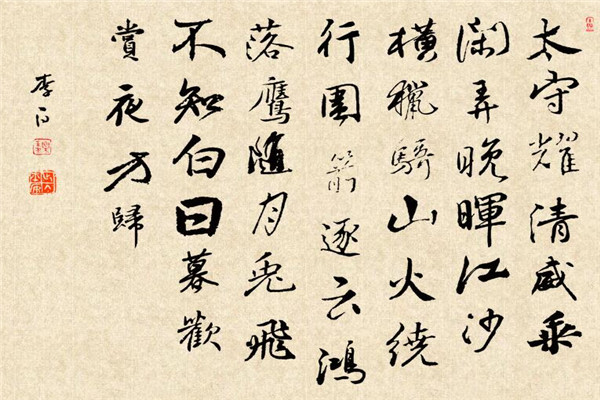 太守耀清威乘
閑弄晚暉江沙
橫獵騎山火繞
行圍箭逐云鴻
落鷹隨月兔飛
不知白日暮歡
賞夜方歸
李白